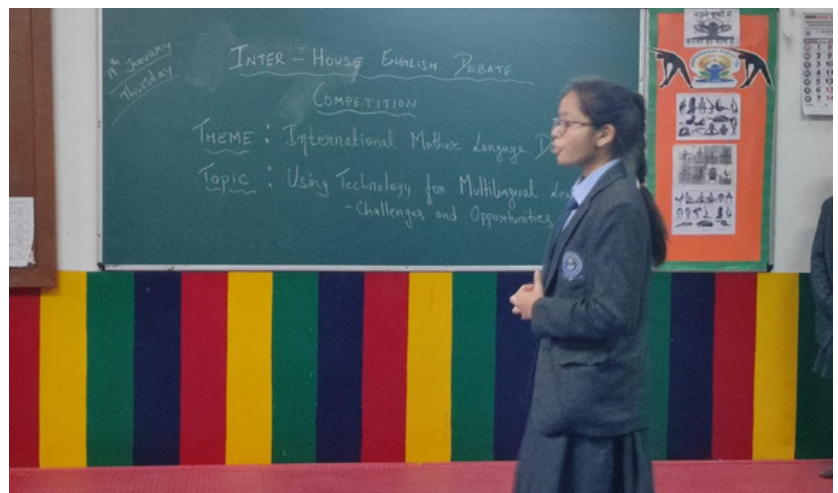 19th January
Thursday
INTER - HOUSE ENGLISH DEBATE
COMPETITION
THEME : International Mother Languge
TOPIC : Using Technology for Multilingual
- Challenges and Opportunities